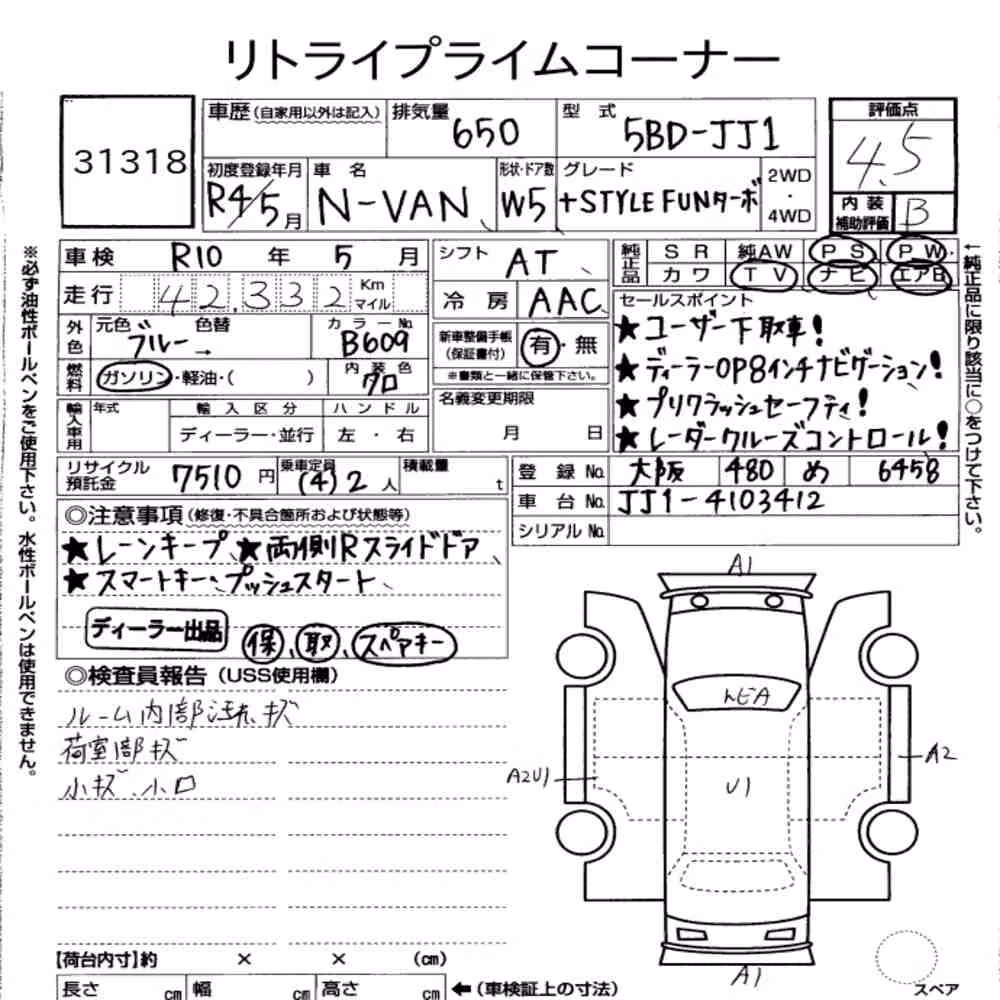 リトライプライムコーナー
31318
車歴(自家用以外は記入)
排気量 650
型式 5BD-JJ1
評価点 4.5
初度登録年月 R4/5月
車名 N-VAN
形状・ドア数 W5
グレード +STYLE FUNターボ
2WD・4WD
内装補助評価 B
車検 R10年 5月
シフト AT
純正品 SR 純AW PS PW
カワ TV ナビ エアB
走行 42,332 Km マイル
冷房 AAC
外色 元色 ブルー 色替 → カラーNo. B609
新車整備手帳(保証書付) 有・無
※書類と一緒に保管下さい。
燃料 ガソリン・軽油・( ) 内装色 クロ
セールスポイント
★ユーザー下取車!
★ディーラーOP8インチナビゲーション!
★プリクラッシュセーフティ!
★レーダークルーズコントロール!
輸入車用 年式 輸入区分 ハンドル
ディーラー・並行 左・右
名義変更期限
月 日
リサイクル預託金 7510円
乗車定員 (4)2人
積載量 t
登録No. 大阪 480 め 6458
車台No. JJ1-4103412
シリアルNo.
◎注意事項(修復・不具合箇所および状態等)
★レーンキープ、★両側Rスライドドア、
★スマートキー・プッシュスタート、
ディーラー出品 保、取、スペアキー
◎検査員報告(USS使用欄)
ルーム内部汚れ、キズ
荷室部キズ
小キズ、小凹
A1
トビA
A2U1
U1
A2
A1
スペア
【荷台内寸】約 × × (cm)
長さ cm 幅 cm 高さ cm ←(車検証上の寸法)
※必ず油性ボールペンをご使用下さい。水性ボールペンは使用できません。
←純正品に限り該当に○をつけて下さい。